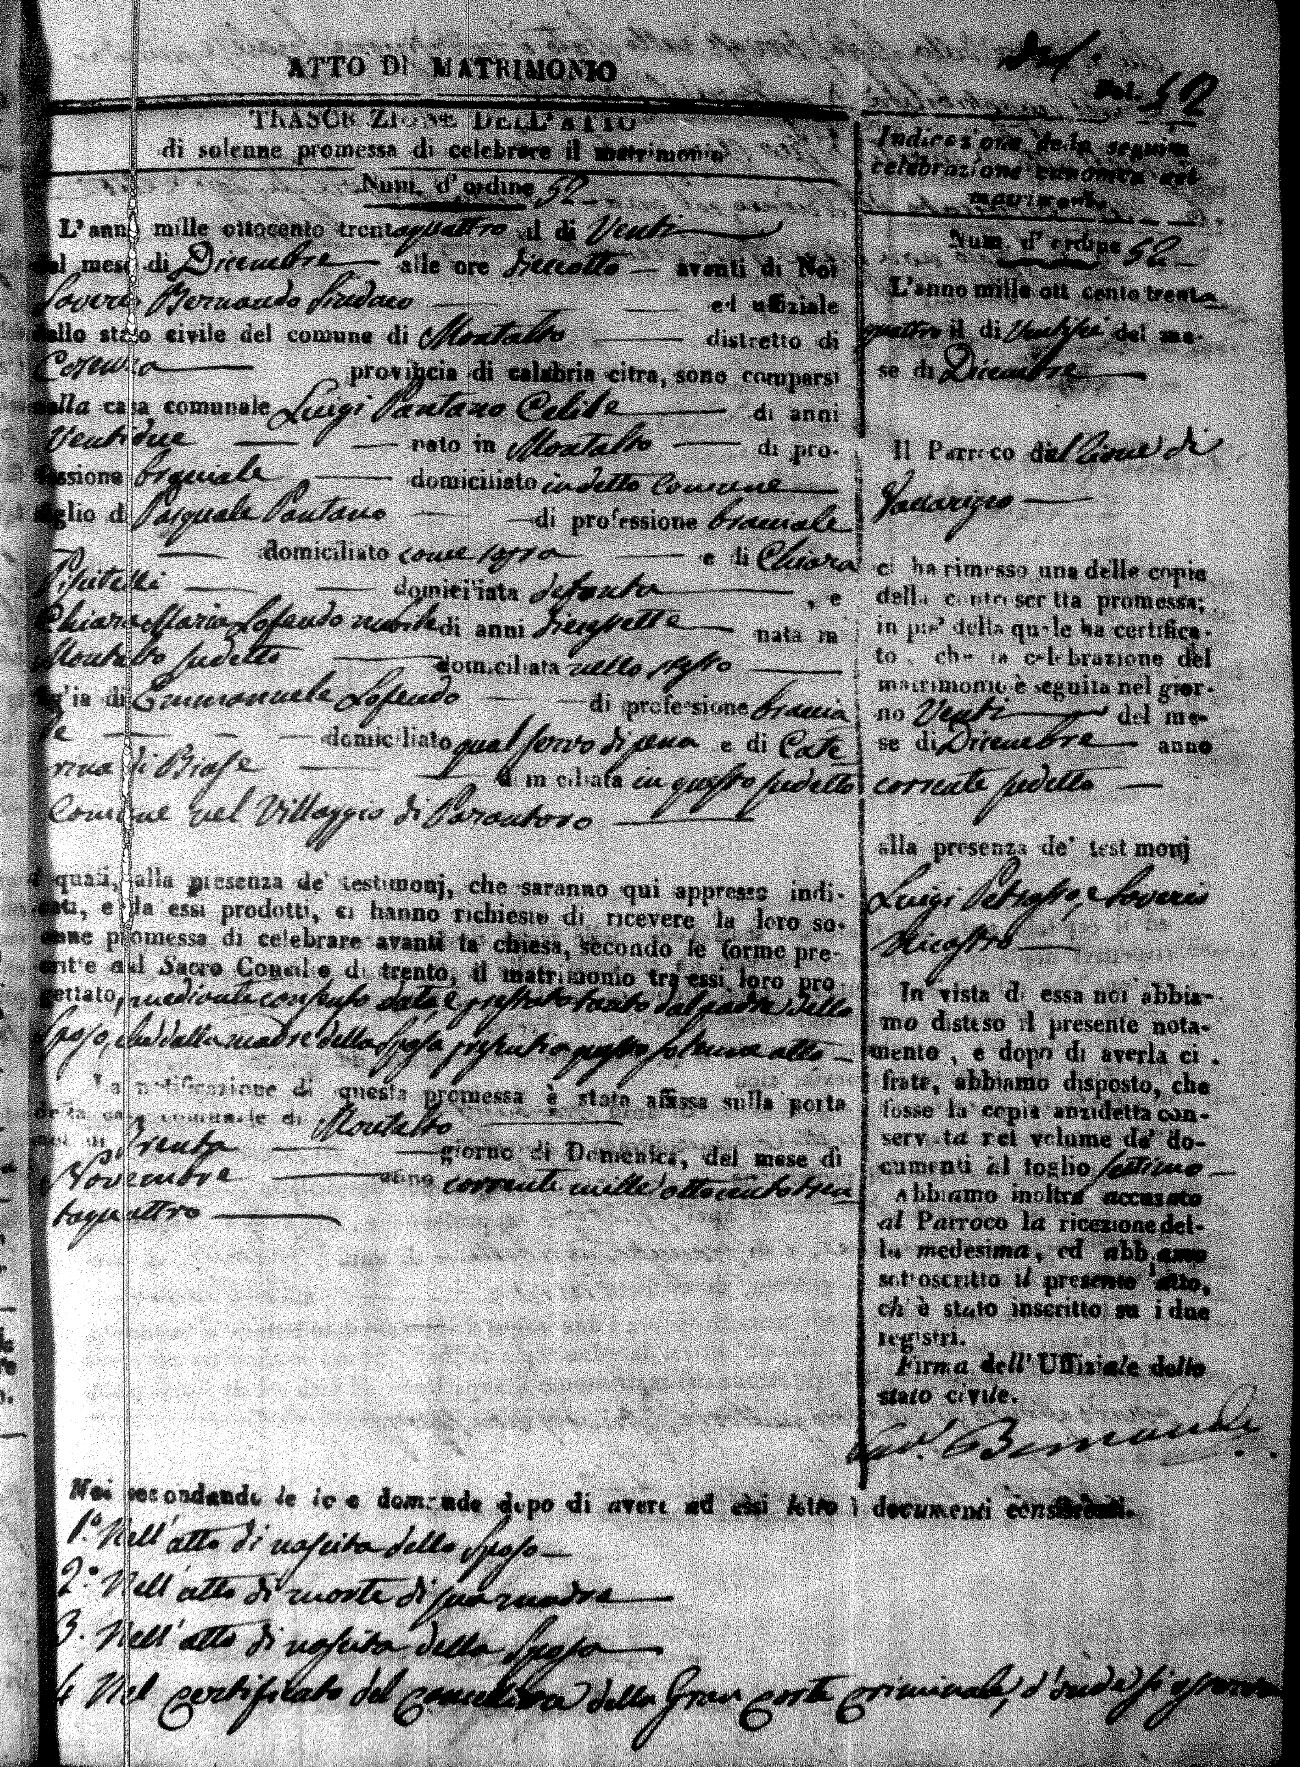 ATTO DI MATRIMONIO
Fol. 52
TRASCRIZIONE DELL'ATTO
di solenne promessa di celebrare il matrimonio
Num. d'ordine 52
L'anno mille ottocento trentaquattro il di Venti
del mese di Dicembre alle ore dieciotto avanti di Noi
Saverio Bernaudo Sindaco ed uffiziale
dello stato civile del comune di Montalto distretto di
Cosenza provincia di calabria citra, sono comparsi
nella casa comunale Luigi Pantano Celibe di anni
Ventidue nato in Montalto di pro-
fessione braciale domiciliato in detto Comune
figlio di Pasquale Pantano di professione braciale
domiciliato come sopra e di Chiara
domiciliata defunta, e
Chiara Maria Lofendo nubile di anni diecisette nata in
Montalto sudetto domiciliata nello stesso
figlia di Emmanuele Lofendo di professione bracia
le domiciliato qual servo di pena e di Cate
rina di Biase domiciliata in questo sudetto
Comune nel Villaggio di Parantoro
I quali, alla presenza de' testimonj, che saranno qui appresso indi-
cati, e da essi prodotti, ci hanno richiesto di ricevere la loro so-
lenne promessa di celebrare avanti la chiesa, secondo le forme pre-
scritte dal Sacro Concilio di trento, il matrimonio tra essi loro pro
gettato, mediante consenso dato, e prestato tanto dal padre dello
Sposo, che dalla madre della Sposa
La notificazione di questa promessa è stata affissa sulla porta
della casa comunale di Montalto
nel di Trenta giorno di Domenica, del mese di
Novembre anno corrente mille ottocento tren
taquattro
Indicazione della seguita
celebrazione canonica del
matrimonio.
Num. d'ordine 52
L'anno mille ottocento trenta
quattro il di Ventisei del me-
se di Dicembre
Il Parroco del Rione di
ci ha rimesso una delle copie
della controscritta promessa;
in pie' della quale ha certifica-
to, che la celebrazione del
matrimonio è seguita nel gior-
no Venti del me-
se di Dicembre anno
corrente sudetto
alla presenza de' testimonj
Luigi e Saverio
Nicastro
In vista di essa noi abbia-
mo disteso il presente nota-
mento, e dopo di averla ci
frata, abbiamo disposto, che
fosse la copia anzidetta con-
servata nel volume de' do-
cumenti al foglio settimo
Abbiamo inoltre accusato
al Parroco la ricezione del-
la medesima, ed abbiamo
sottoscritto il presente atto,
ch'è stato inscritto su i due
registri.
Firma dell'Uffiziale dello
stato civile.
Sav.º Bernaudo
Noi secondando le loro domande dopo di avere ad essi letto i documenti consistenti.
1.º Nell'atto di nascita dello Sposo
2.º Nell'atto di morte di sua madre
3. Nell'atto di nascita della Sposa
4. Nel Certificato del Cancelliere della Gran Corte Criminale, d'onde si